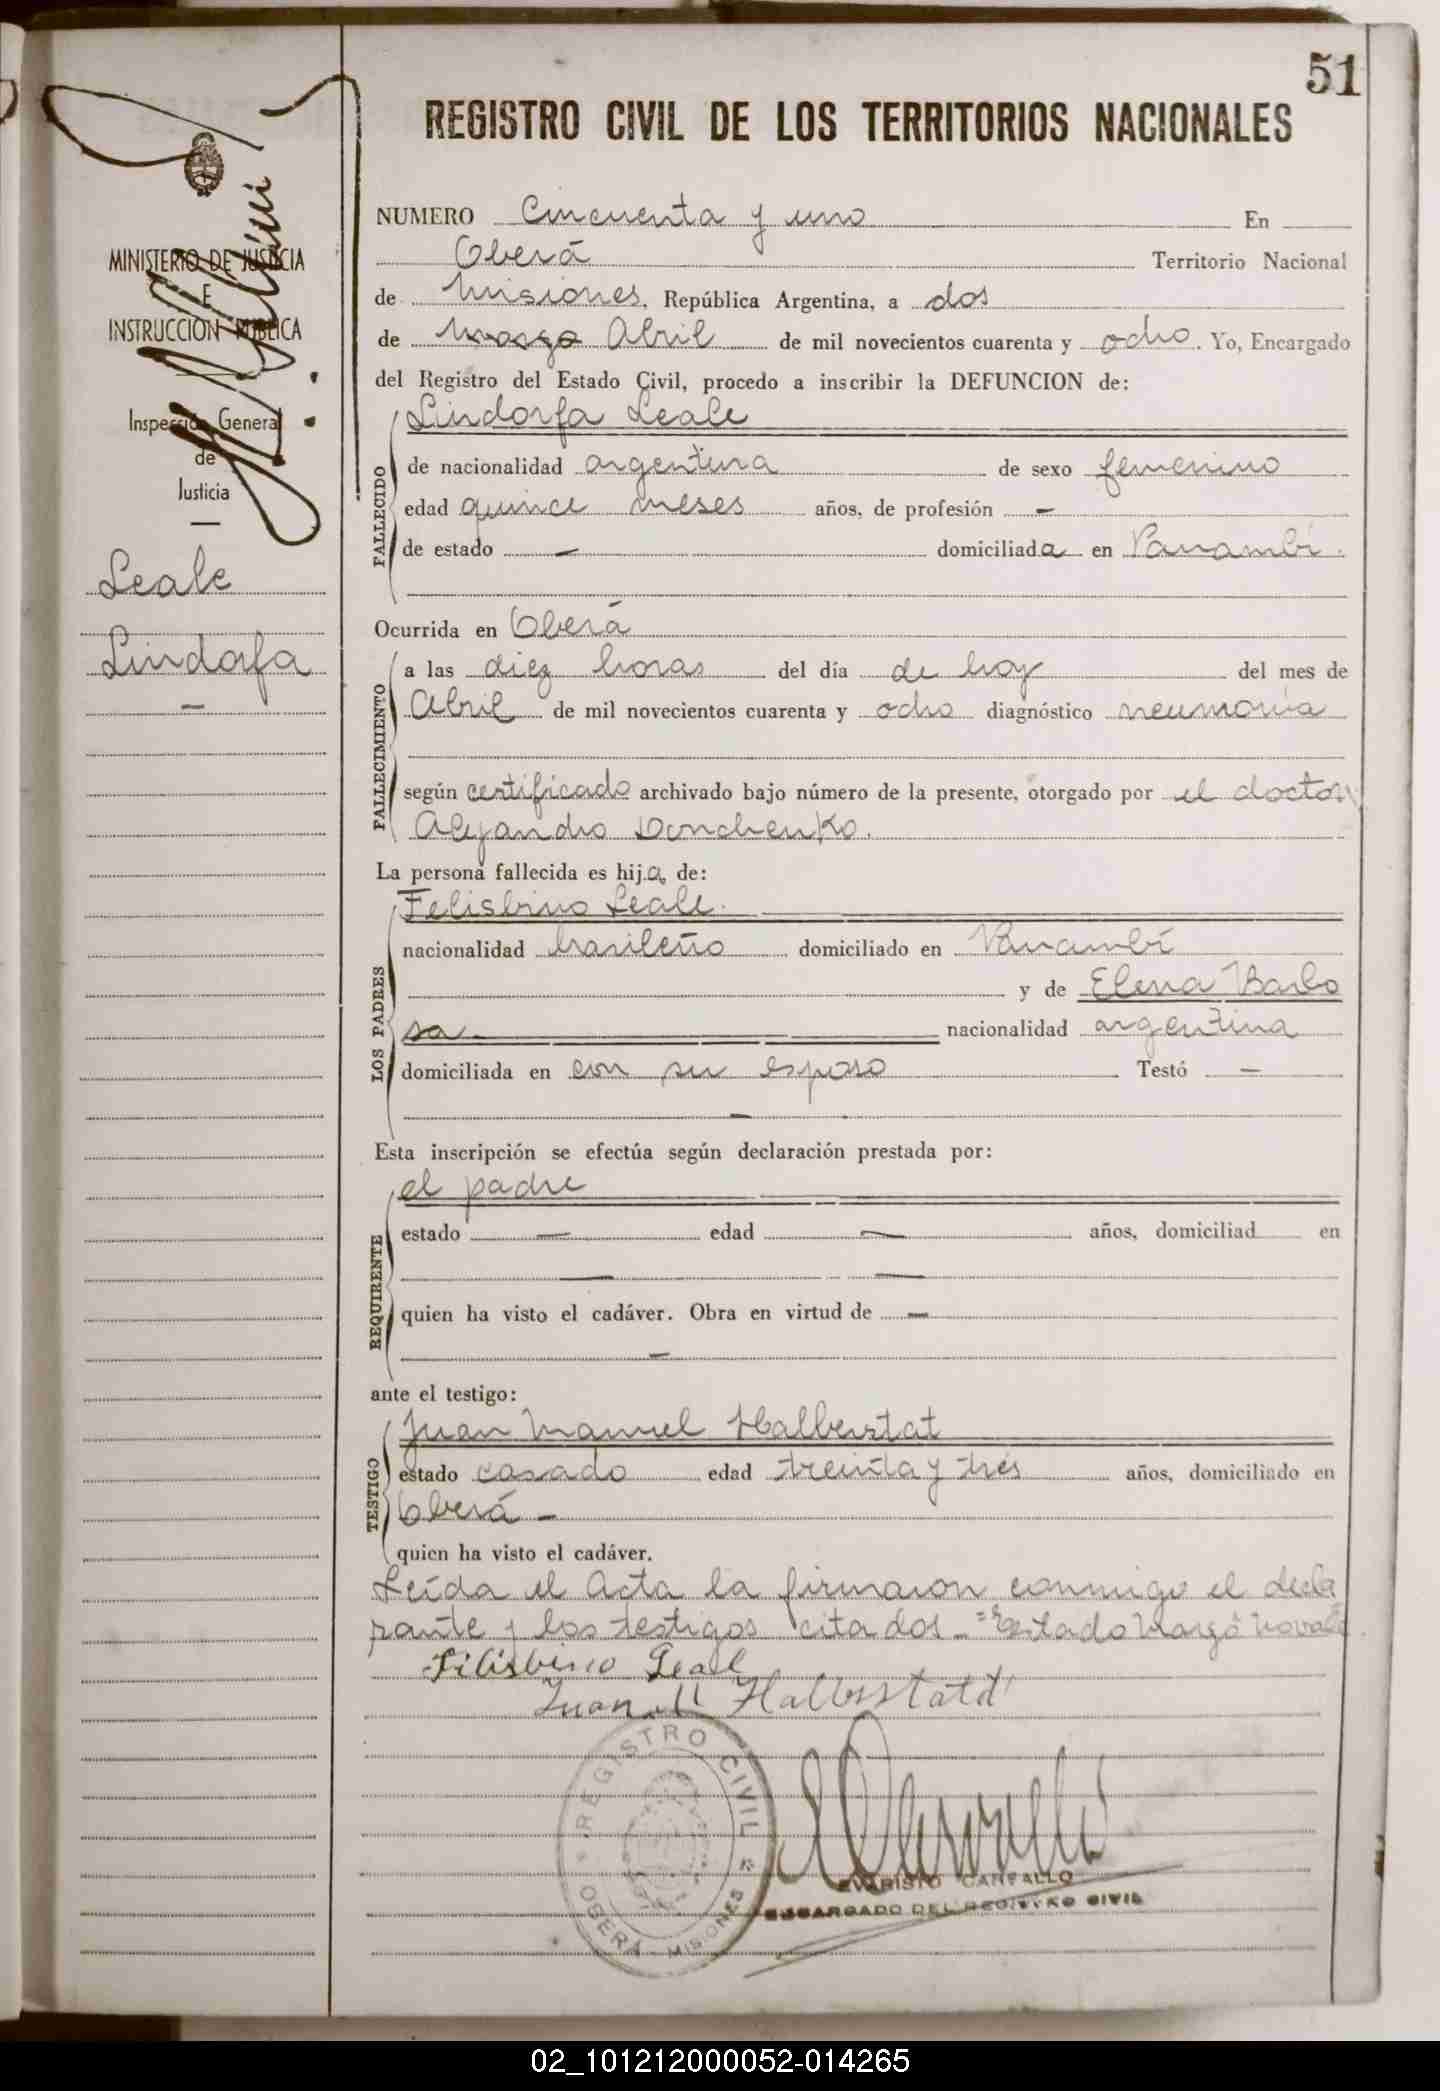 51
REGISTRO CIVIL DE LOS TERRITORIOS NACIONALES
MINISTERIO DE JUSTICIA
E
INSTRUCCION PUBLICA
Inspección General
de
Justicia
Leale
Lindorfa
NUMERO Cincuenta y uno En
Oberá Territorio Nacional
de Misiones, República Argentina, a dos
de Marzo Abril de mil novecientos cuarenta y ocho. Yo, Encargado
del Registro del Estado Civil, procedo a inscribir la DEFUNCION de:
FALLECIDO
Lindorfa Leale
de nacionalidad argentina de sexo femenino
edad quince meses años, de profesión —
de estado — domiciliada en Panambí.
Ocurrida en Oberá
FALLECIMIENTO
a las diez horas del día de hoy del mes de
Abril de mil novecientos cuarenta y ocho diagnóstico neumonia
según certificado archivado bajo número de la presente, otorgado por el doctor
Alejandro Donchenko.
La persona fallecida es hija de:
LOS PADRES
Felisbino Leale.
nacionalidad brasileño domiciliado en Panambí
y de Elena Barbo
sa nacionalidad argentina
domiciliada en con su esposo Testó —
—
Esta inscripción se efectúa según declaración prestada por:
REQUIRENTE
el padre
estado — edad — años, domiciliad en
— —
quien ha visto el cadáver. Obra en virtud de —
—
ante el testigo:
TESTIGO
Juan Manuel Halberstat
estado casado edad treinta y tres años, domiciliado en
Oberá —
quien ha visto el cadáver.
Leída el Acta la firmaron conmigo el decla
rante y los testigos citados = "Testado Marzo" no vale.
Filisbino Leale
Juan M Halberstatd
REGISTRO CIVIL
OBERÁ - MISIONES
EVARISTO CARFALLO
ENCARGADO DEL REGISTRO CIVIL
02_101212000052-014265